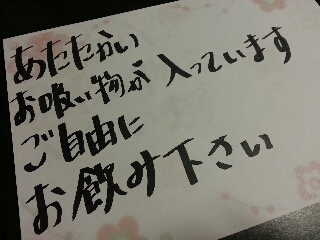 あたたかい
お吸い物が入っています
ご自由に
お飲み下さい